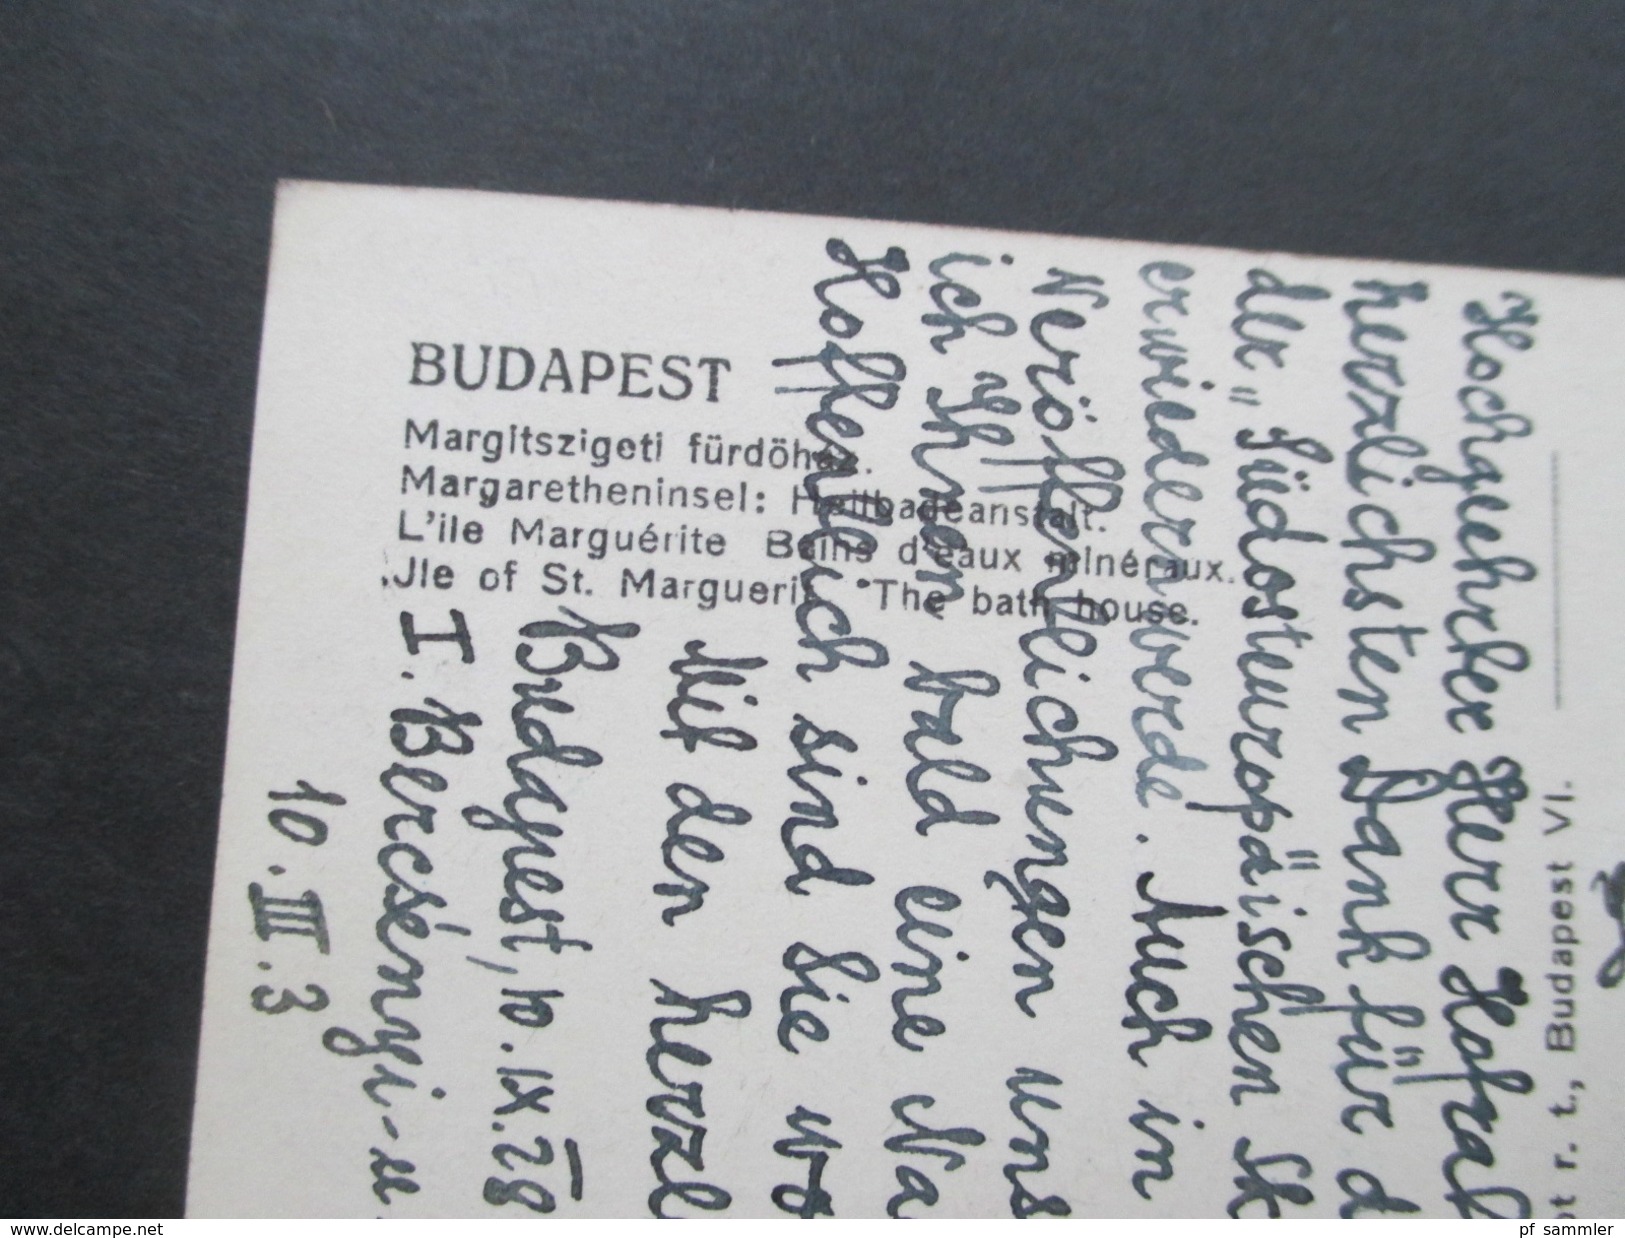 BUDAPEST
Margitszigeti fürdőház.
Margaretheninsel: Heilbadeanstalt.
L'ile Marguérite Bains d'eaux minéraux.
Jle of St. Marguerit. The bath house.
Hochgeehrter Herr Hofrat
herzlichsten Dank für d
der „Südosteuropäischen Sk
erwiedern werde. Auch in
Veröffentlichungen uns
ich Ihnen bald eine Na
Hoffentlich sind Sie wo
Mit den herzl
Budapest, 10. IX. 28
I. Bercsényi-u
10. III. 3
ot r. t., Budapest VI.
www.delcampe.net
pf_sammler